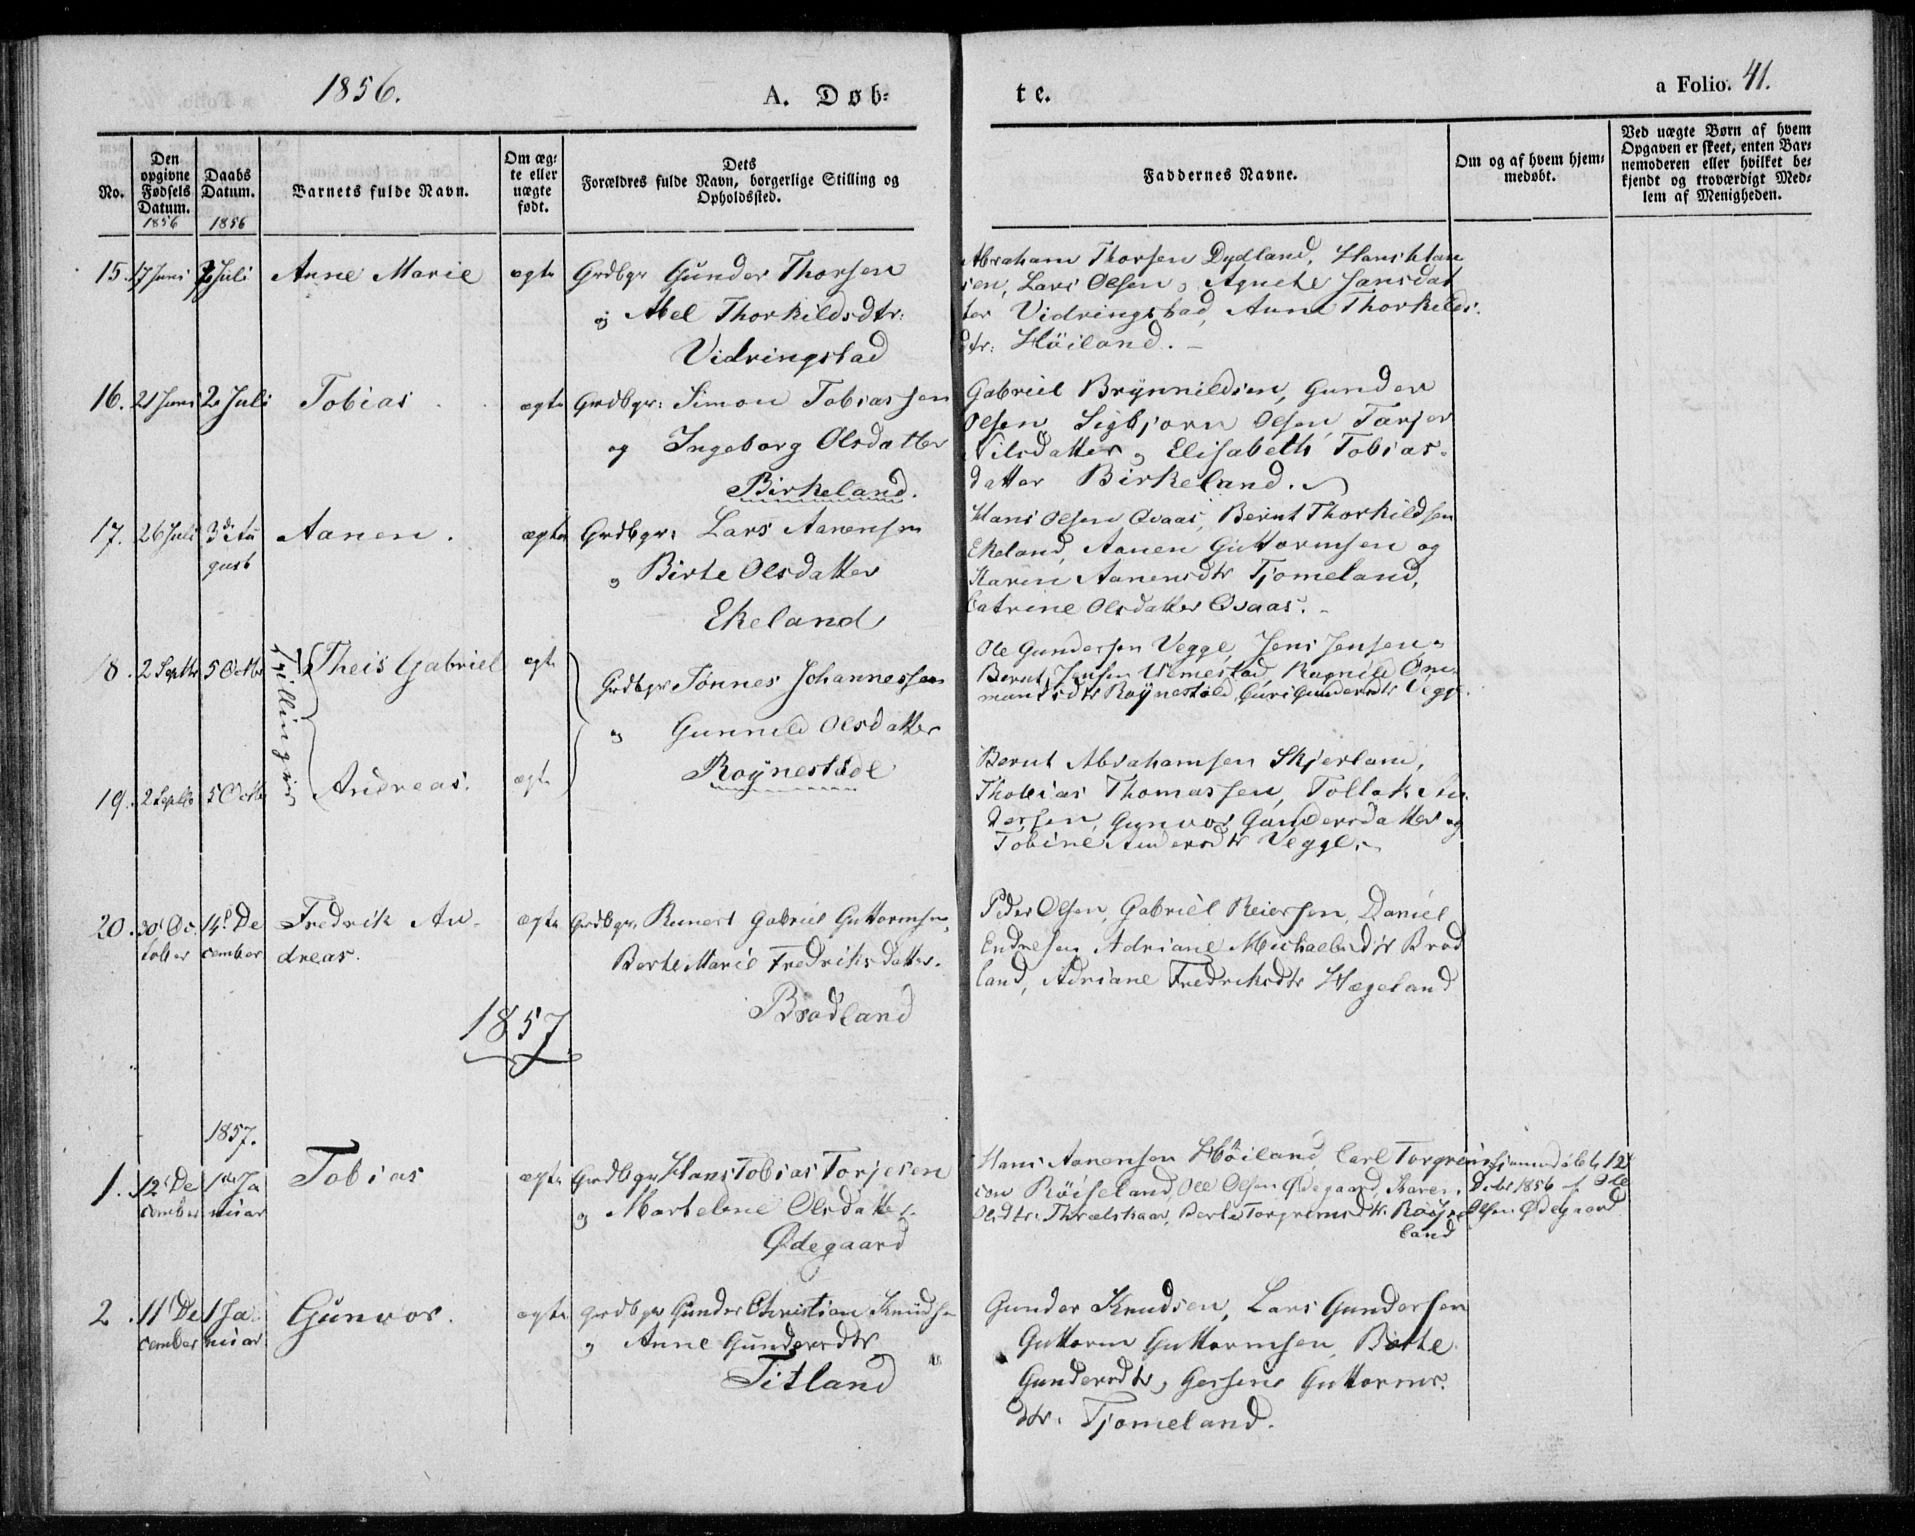 1856.
A. Døb-
te.
a Folio. 41.
No.
Den
opgivne
Fødsels
Datum.
1856
Daabs
Datum.
1856
Barnets fulde Navn.
Om æg-
te eller
uægte
født.
Dets
Forældres fulde Navn, borgerlige Stilling og
Opholdssted.
Faddernes Navne.
Om og af hvem hjem-
medøbt.
Ved uægte Børn af hvem
Opgaven er skeet, enten Bar-
nemoderen eller hvilket be-
kjendt og troværdigt Med-
lem af Menigheden.
15. 17 Juni 2 Juli Anne Marie ægte Grdbgr Gunder Thorsen
og Abel Thorkildsdtr:
Vidringstad
Abraham Thorsen Dydland, Hans Han
sen, Lars Olsen og Agnete Jansdat
ter Vidringstad, Anne Thorkilds-
dtr: Höiland.
16. 21 Juni 2 Juli Tobias ægte Grdbgr: Simon Tobiassen
og Ingeborg Olsdatter
Birkeland.
Gabriel Brynnildsen, Gunder
Olsen, Sigbjorn Olsen, Tarjer
Nilsdatter og Elisabeth Tobias-
datter Birkeland.
17. 26 Juli 3de Au
gust
Aanen. ægte Grdbgr: Lars Aanensen
og Birte Olsdatter
Ekeland
Hans Olsen Qvaas, Bernt Thorkildsen
Ekeland, Aanen Guttormsen og
Karen Aanensdtr Tjomeland,
Catrine Olsdatter Qvaas.
18. 2 Septbr 5 Octbr Tvillinger Theis Gabriel ægte
Grdbgr Tønnes Johannessen
og Gunnild Olsdatter
Røynestøde
Ole Gundersen Vegge, Jens Jensen,
Bernt Jensen Usmestad, Ragnild Om-
mundsdtr Røynestøle, Guri Gundersdtr Vegge.
19. 2 Septbr 5 Octbr Andreas. ægte
Bernt Abrahamsen Skjerland,
Thobias Thomassen, Tollak An-
dersen, Gunvor Gundersdatter og
Tobine Andersdtr Vegge.
20. 30 Oc-
tober
14de De
cember
Fredrik An-
dreas.
ægte Grdbgr. Reinert Gabriel Guttormsen,
Berte Marie Fredriksdatter.
Brodland
Peder Olsen, Gabriel Reiersen, Daniel
Endresen, Adriane Michaelsdtr Brod
land, Adriane Fredriksdtr Hægeland
1857
1857.
1. 12 De
cember
1ste Ja
nuar
Tobias ægte Grdbgr Hans Tobias Torjesen
og Martelene Olsdatter
Ødegaard
Hans Aanensen Höiland, Carl Torgrims
sen Röiseland, Ole Olsen Ødegaard, Karen
Olsdtr: Thrælskaar, Berte Torgrimsdtr: Röise
land
Hjemmedöbt 12
Decbr 1856 af Ole
Olsen Ødegaard
2. 11 De
cember
1 Ja
nuar
Gunvor. ægte Grdbgr Gunder Christian Knudsen
og Anne Gundersdtr
Titland
Gunder Knudsen, Lars Gundersen
Guttorm Guttormsen, Berte
Gundersdtr, Gersine Guttorms-
dtr. Tjomeland.